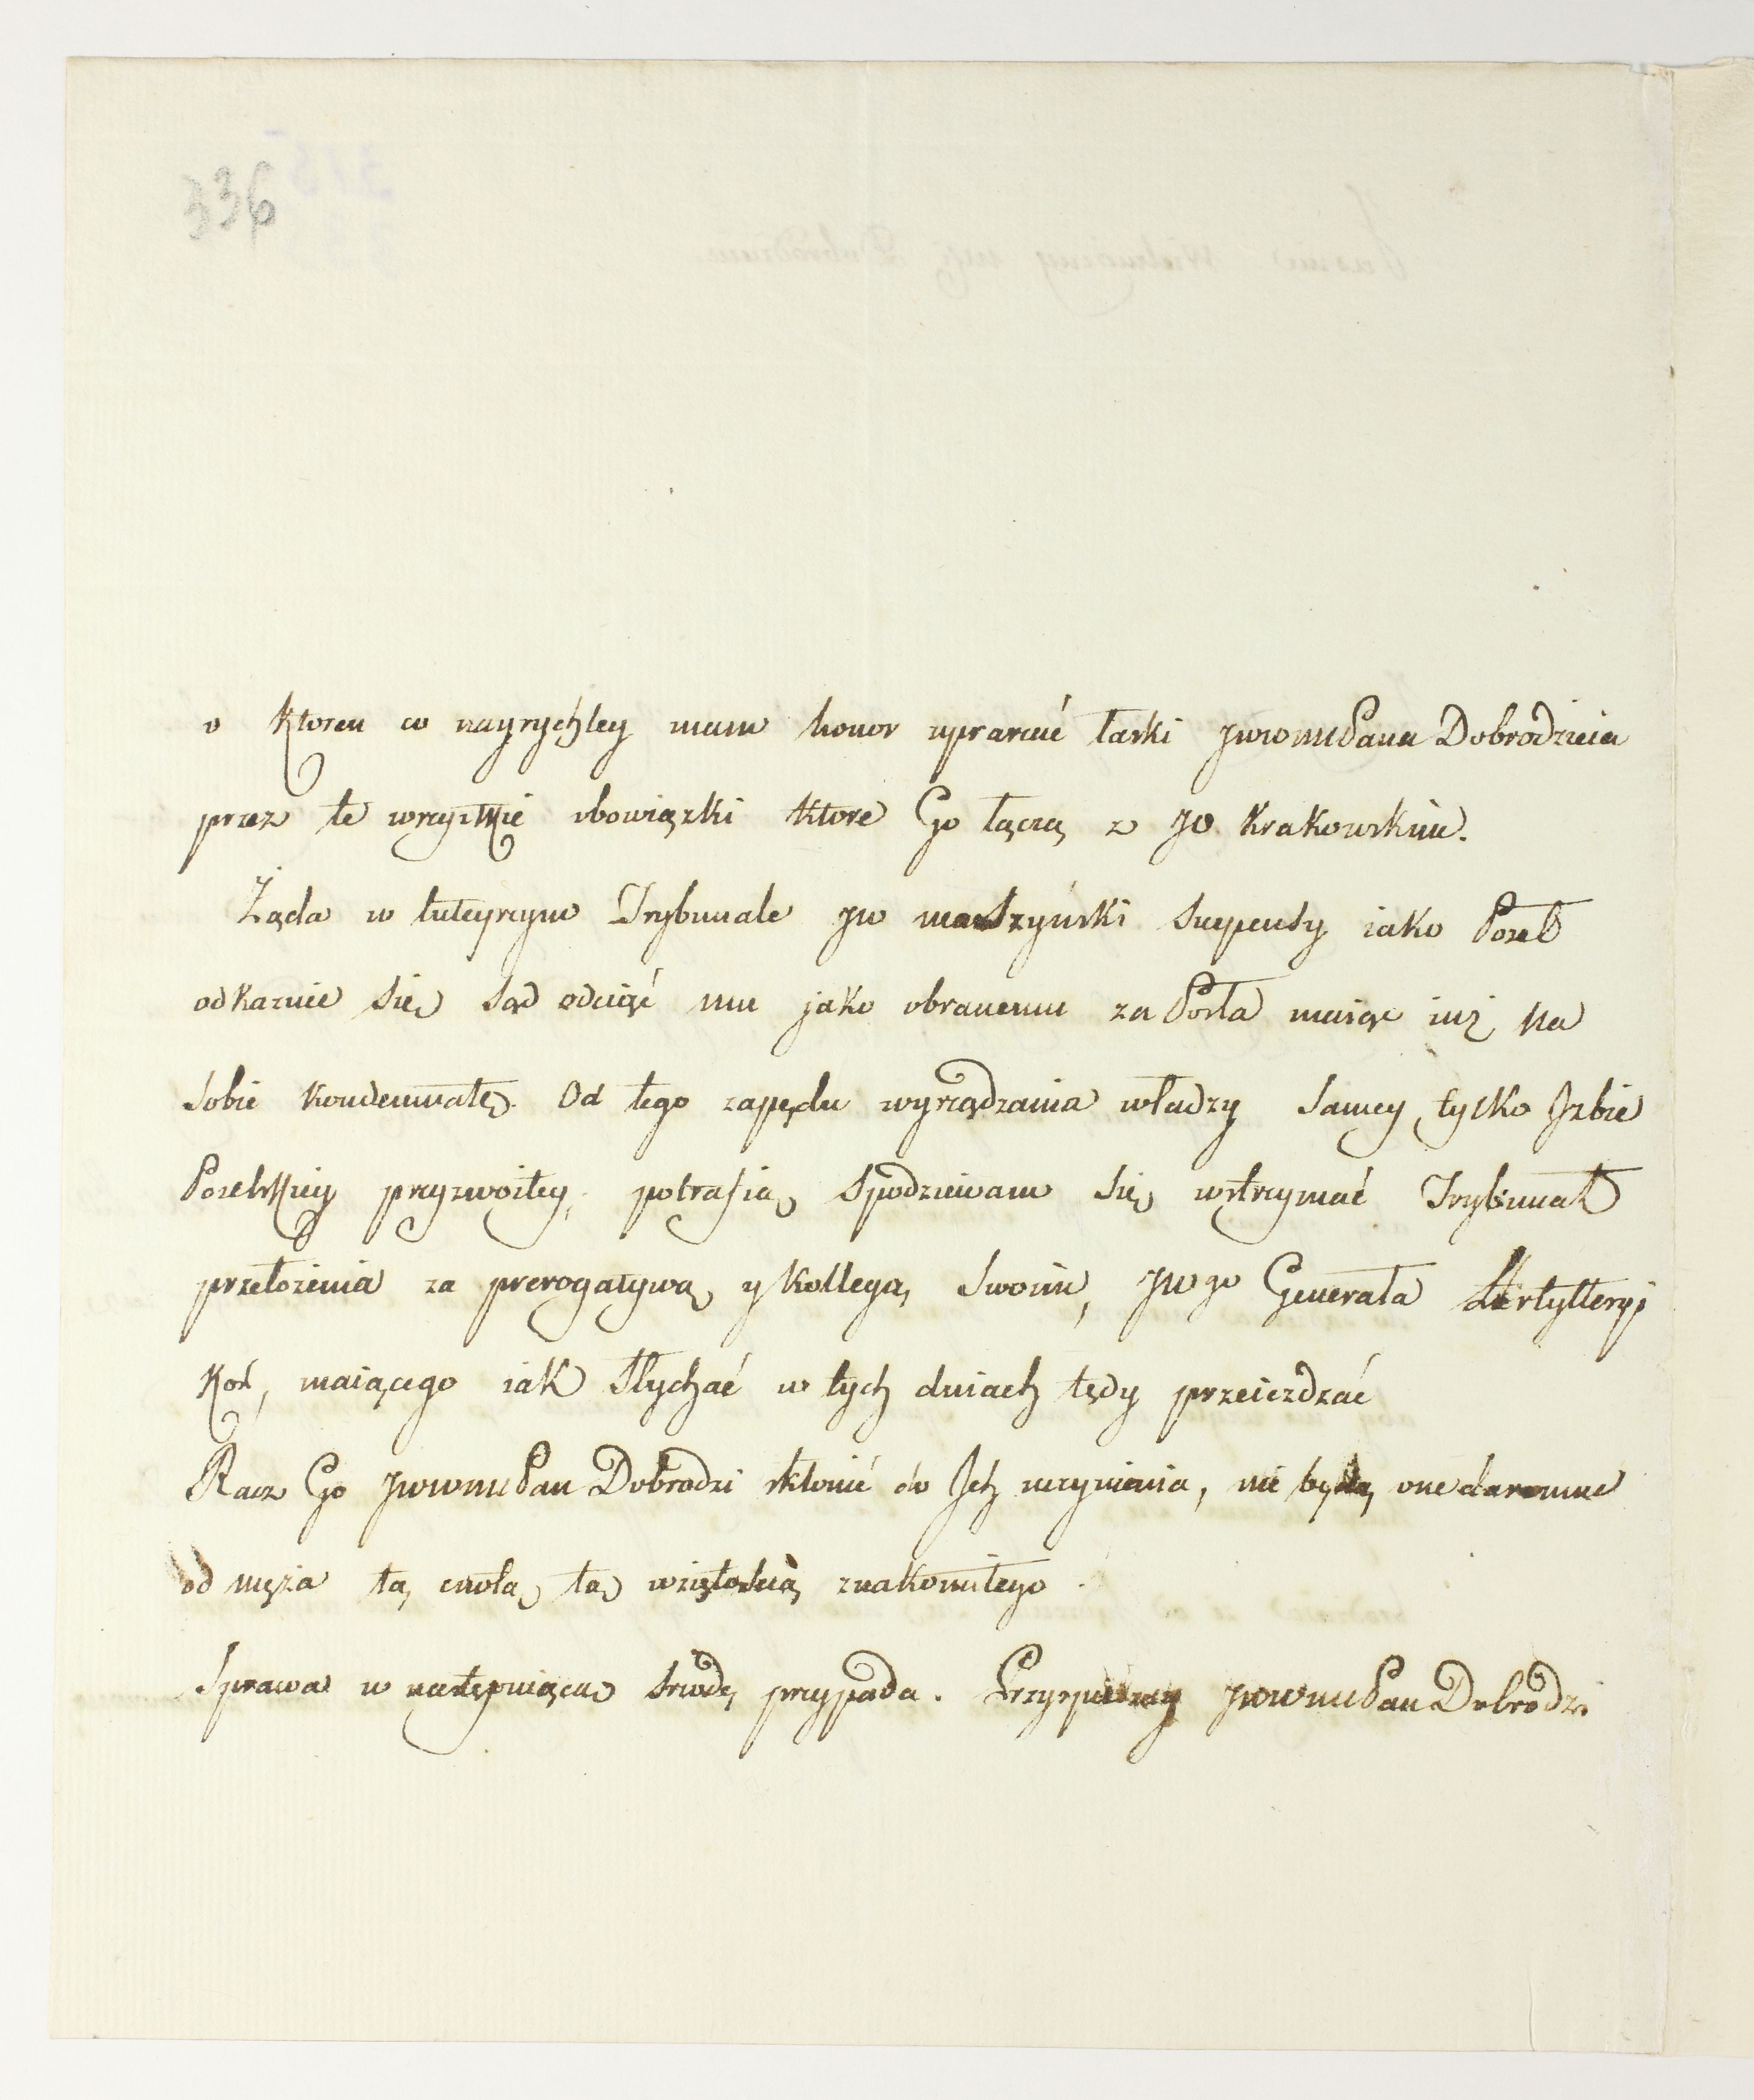 336
o ktoren co nayrychley mam honor upraszać łaski JWWMPana Dobrodzieia
przez te wszystkie obowiązki ktore Go łączą z JO Krakowskim.
Żąda w tuteyszym Trybunale JW Moszyński suspensy iako Poseł
odkaznie się Sąd odciąć mu jako obranemu za Posła maiąc iuż na
sobie kondemnatę. Od tego zapędu wyrządzania władzy samey tylko Jzbie
Poselskiey przyzwoitey, potrafią spodziewam się wstrzymać Trybunał
przełożenia za prerogatywą y kollegą swoim, JWgo Generała Artylleryi
Kor, maiącego iak słychać w tych dniach tędy przeieżdzać
Racz Go JWWMPan Dobrodzi skłonić do Jch uczynienia, nie będą one daremne
od męża tą cnotą tą wziętością znakomitego.
Sprawa w następuiącą srzodę przypada. Przyspieszay JWWMPan Dobrodzi